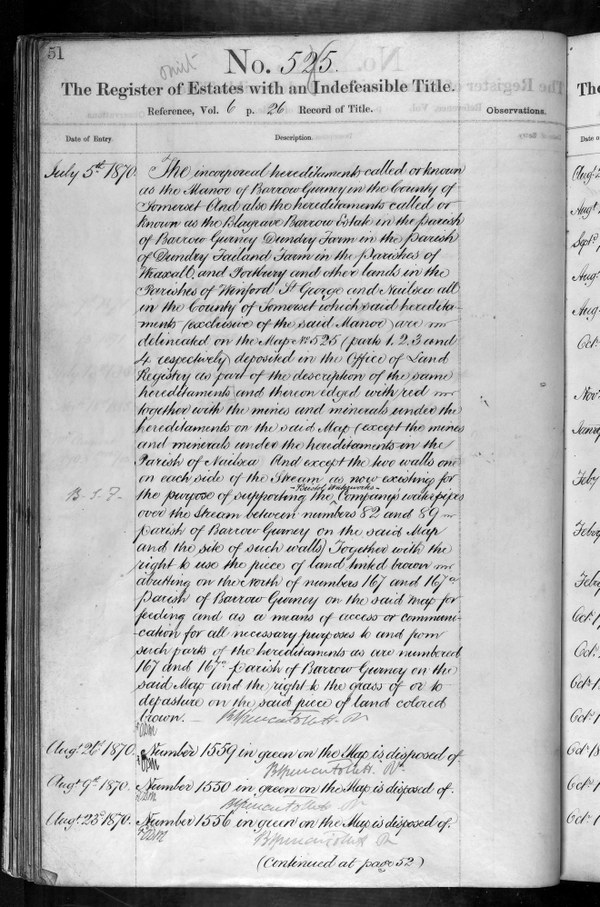 51
omit
No. 525.
The Register of Estates with an Indefeasible Title.
Reference, Vol. 6 p. 26 Record of Title.
Observations.
Date of Entry. Description.
July 5th 1870. The incorporeal hereditaments called or known
as the Manor of Barrow Gurney in the County of
Somerset And also the hereditaments called or
known as the Blagrave Barrow Estate in the Parish
of Barrow Gurney Dundry Farm in the Parish
of Dundry Failand Farm in the Parishes of
Wraxall, and Portbury and other lands in the
Parishes of Winford St George and Nailsea all
in the County of Somerset which said heredita-
ments (exclusive of the said Manor) are
delineated on the Map No 525 (parts 1. 2. 3 and
4 respectively) deposited in the Office of Land
Registry as part of the description of the same
hereditaments and thereon edged with red
together with the mines and minerals under the
hereditaments on the said Map (except the mines
and minerals under the hereditaments in the
Parish of Nailsea And except the two walls one
on each side of the Stream as now existing for
B. S. F. the purpose of supporting the Bristol Waterworks Companys waterpipes
over the Stream between numbers 82 and 89
Parish of Barrow Gurney on the said Map
and the site of such walls) Together with the
right to use the piece of land tinted brown
abutting on the North of numbers 167 and 167a
Parish of Barrow Gurney on the said Map for
feeding and as a means of access or communi-
cation for all necessary purposes to and from
such parts of the hereditaments as are numbered
167 and 167a Parish of Barrow Gurney on the
said Map and the right to the grass of or to
depasture on the said piece of land colored
brown. BSpencer Follett. Rr
Augt 2d 1870. Number 1559 in green on the Map is disposed of
BSpencer Follett. Rr.
Augt 9th 1870. Number 1550 in green on the Map is disposed of.
BSpencer Follett Rr
Augt 23d 1870. Number 1556 in green on the Map is disposed of.
BSpencer Follett Rr
(Continued at page 52)